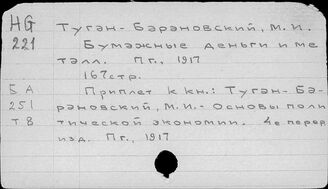 HG Туган-Барановский, М. И.
221 Бумажные деньги и ме
талл. Пг., 1917
167стр.
БА Приплет к кн.: Туган-Ба-
251 рановский, М.И.- Основы поли
Т8 тической экономии. 4е перер
изд. Пг., 1917